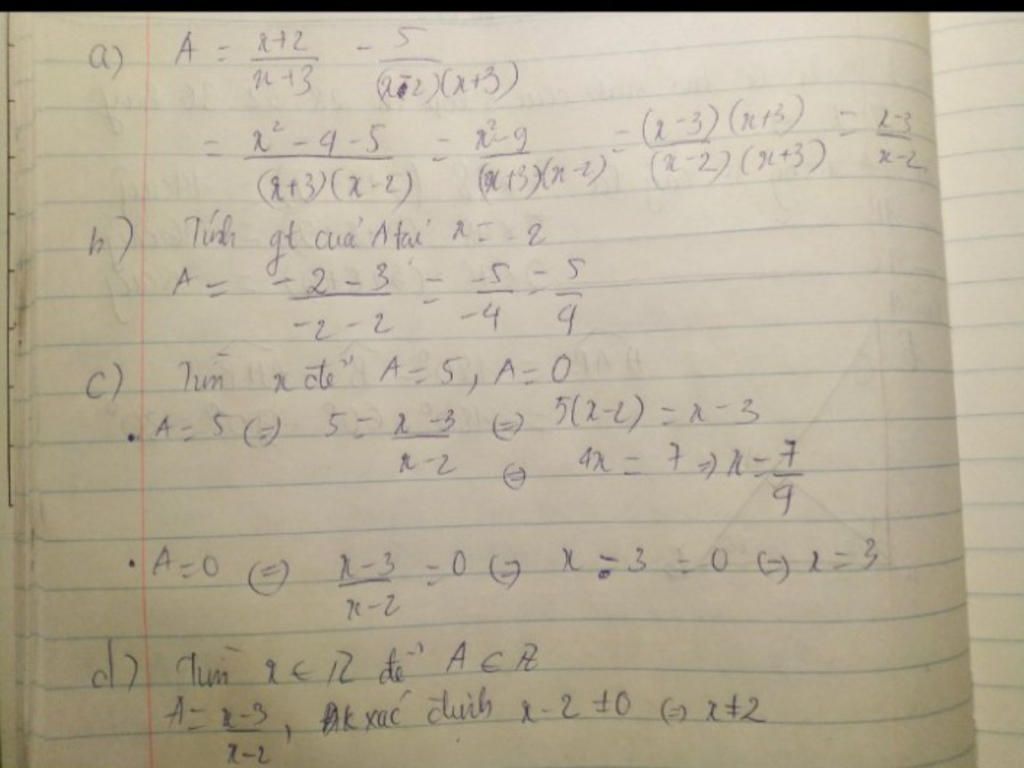 a) A = x+2/x+3 - 5/(x-2)(x+3)
= x² - 4 - 5/(x+3)(x-2) = x²-9/(x+3)(x-2) = (x-3)(x+3)/(x-2)(x+3) = x-3/x-2
b) Tính gt của A tại x = -2
A = -2-3/-2-2 = -5/-4 = 5/4
c) Tìm x để A = 5, A = 0
• A = 5 (=) 5 = x-3/x-2 (=) 5(x-2) = x-3
(=) 4x = 7 => x = 7/4
• A = 0 (=) x-3/x-2 = 0 (=) x - 3 = 0 (=) x = 3
d) Tìm x ∈ Z để A ∈ Z
A = x-3/x-2, Đk xác định x-2 ≠ 0 (=) x ≠ 2